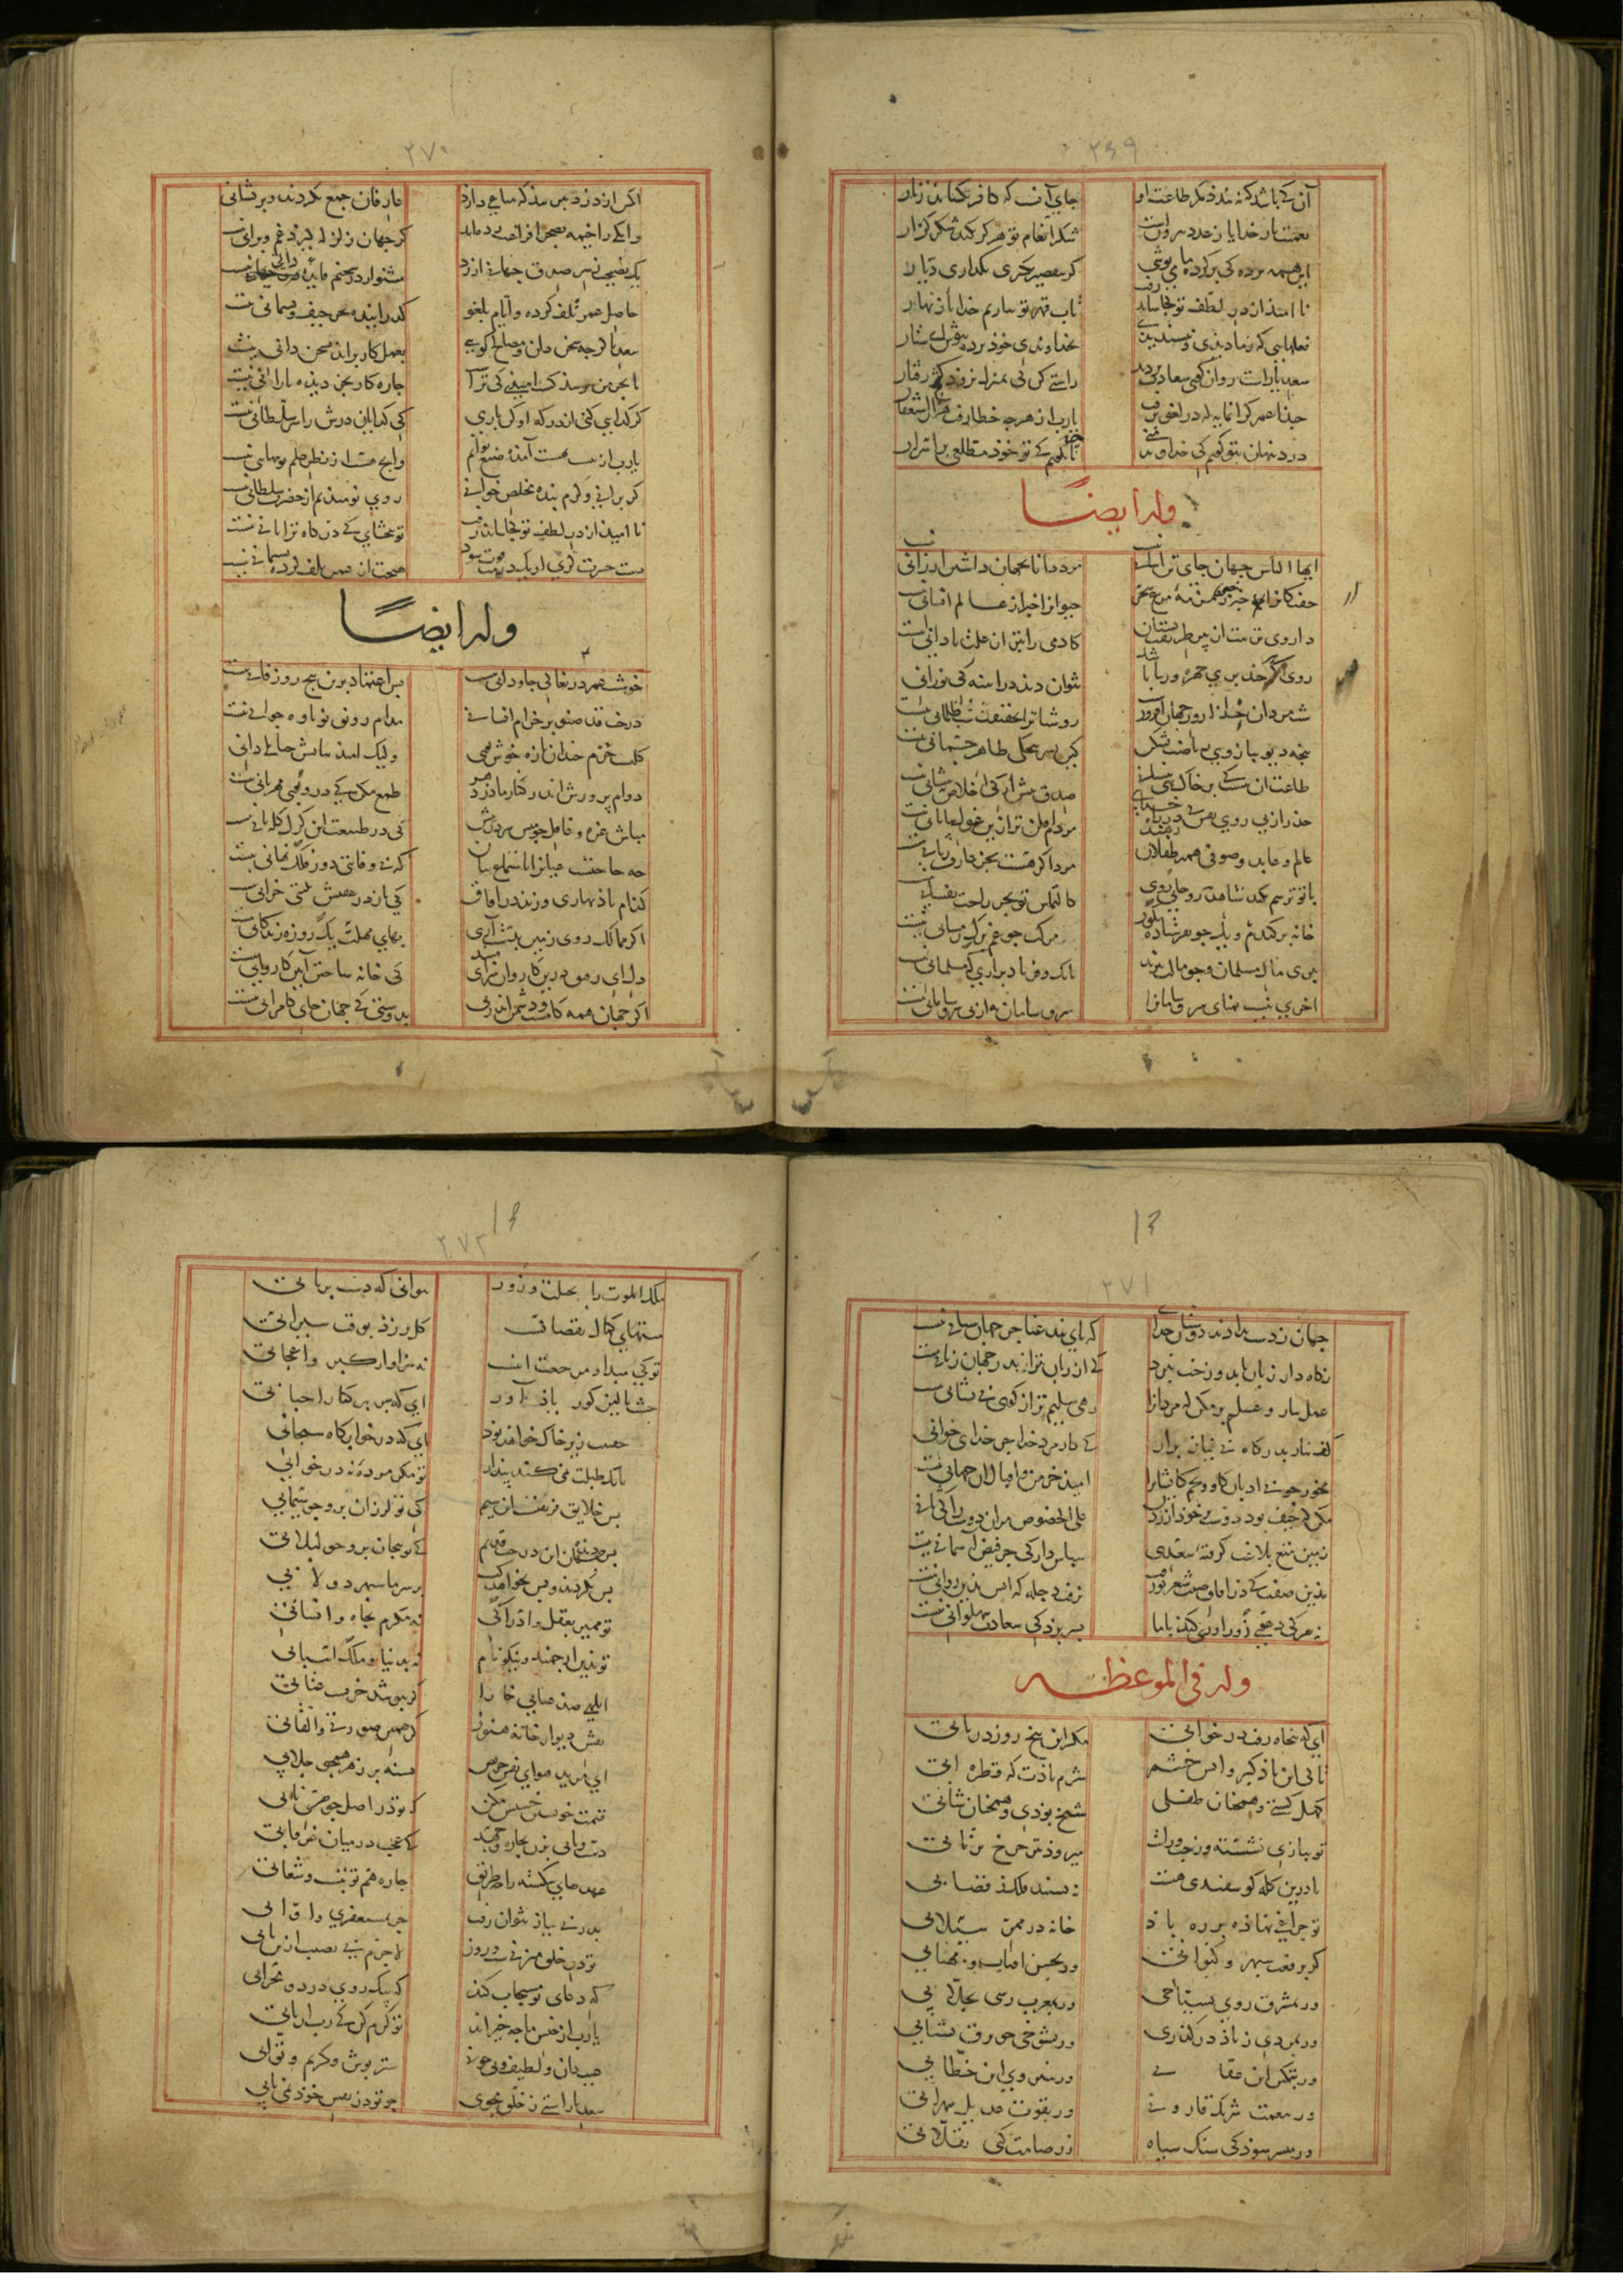 ۲۶۹
آن کی باشد که نبندد کمر طاعت او جای آنست که کافر بکشاید زنار
نعمت بار خدایا ز عدد بیرونست شکر انعام تو هرگز نکند شکر گزار
این همه پرده کی بر کرده ما می پوشی گر بتقصیر بگیری نگذاری دیار
نا امید از در لطف تو کجا شاید رفت تاب قهر تو نیاریم خدایا زنهار
فعلهایی که ز ما دیدی و نپسندیدی بخداوندی خود پرده بپوش ای ستار
سعدیا راست روان گوی سعادت بردند راستی کن کی بمنزل نرود کژ رفتار
حبذا عمر گرانمایه که در لغو برفت یارب از هرچه خطا رفت هزار استغفار
درد پنهان بتو گویم کی خداوند منی یا نگویم کی تو خود مطلعی بر اسرار
وله ایضاً
ایها الناس جهان جای تن آسانی نیست مرد دانا بجهان داشتن ارزانی نیست
خفتگان را خبر از زمزمه مرغ سحر حیوان را خبر از عالم انسانی نیست
داروی تربیت از پیر طریقت بستان کادمی را بتر از علت نادانی نیست
روی اگر چند پری چهره و زیبا باشد نتوان دید در آینه کی نورانی نیست
شب مردان خدا روز جهان افروزست روشنانرا بحقیقت شب ظلمانی نیست
پنجه دیو ببازوی ریاضت بشکن کین بسر پنجگی ظاهر جسمانی نیست
طاعت آن نیست کی بر خاک نهی پیشانی صدق پیش آر کی اخلاص بپیشانی نیست
حذر از پی روی نفس کی در راه خدای مردم افکن تر ازین غول بیابانی نیست
عالم و عابد و صوفی همه طفلان رهند مرد اگر هست بجز عارف ربانی نیست
با تو ترسم نکند شاهد روحانی روی کالتماس تو بجز راحت نفسانی نیست
خانه پر گندم و یک جو نفرستاده بگور برگ مرگت چو غم برگ زمستانی نیست
ببری مال مسلمان و چو مالت ببرند بانک و فریاد برآری کی مسلمانی نیست
آخری نیست تمنای سر و سامان را سر و سامان به ازین بی سر و سامانی نیست
۲۷۰
آنکس از دزد بترسد که متاعی دارد عارفان جمع نکردند و پریشانی نیست
وانکی را خیمه بصحرای فراغت زده‌اند گر جهان زلزله گیرد غم ویرانی نیست
یک نصیحت ز سر صدق جهانی ارزد مشنو ار در سخنم فایده دو جهانی نیست
حاصل عمر تلف کرده و ایام بلغو گذرانیده بجز حیف و پشیمانی نیست
سعدیا گرچه سخن دان و مصالح گویی بعمل کار برآید بسخن دانی نیست
تا بخرمن برسد کشت امیدی کی تراست چاره کار بجز دیده بارانی نیست
گر گدایی کنی از درگه او کن باری کی گدایان درش را سر سلطانی نیست
یارب از نیست بهست آمده صنع توایم وانچ هست از نظر علم تو پنهانی نیست
گر برانی و گرم بنده مخلص خوانی روی نومیدیم از حضرت سلطانی نیست
نا امید از در لطف تو کجا شاید رفت تو ببخشای کی درگاه ترا ثانی نیست
دست حسرت گزی ار یک درمت فوت شود هیچت از عمر تلف کرده پشیمانی نیست
وله ایضاً
خوشست عمر دریغا کی جاودانی نیست بس اعتماد برین پنج روز فانی نیست
درخت قد صنوبر خرام انسان را مدام رونق نوباوه جوانی نیست
گلیست خرم خندان تازه خوش بوی ولیک امید ثباتش چنانک دانی نیست
دوام پرورش اندر کنار مادر دهر طمع مکن کی درو بوی مهربانی نیست
مباش غره و غافل چو میش سر در پیش کی در طبیعت این گرگ گله بانی نیست
چه حاجتست عیان را باستماع بیان که بی وفایی دور فلک نهانی نیست
کدام باد بهاری وزید در آفاق کی باز در عقبش نکبتی خزانی نیست
اگر ممالک روی زمین بدست آری بهای مهلت یک روزه زندگانی نیست
دل ای رفیق درین کاروان سرای مبند کی خانه ساختن آیین کاروانی نیست
اگر جهان همه کامست و دشمن اندر پی بدوستی کی جهان جای کامرانی نیست
۲۷۱
جهان ز دست بدادند دوستان خدای که پای بند عنا جز جهان ستانی نیست
نگاه دار زبان تا بدوزخت نبرد کی از زبان بتر اندر جهان زیانی نیست
عمل بیار و علم بر مکن که مردان را رهی سلیم تر از کوی بی نشانی نیست
کف نیاز بدرگاه بی نیاز برآر کی کار مرد خدا جز خدای خوانی نیست
مکن که حیف بود دوست بر خود آزردن علی الخصوص مر آن دوست را کی ثانی نیست
زمین بتیغ بلاغت گرفته سعدی سپاس دار کی جز فیض آسمانی نیست
بدین صفت کی در آفاق صیت شعر تو رفت نرفت دجله که آبش بدین روانی نیست
نه هر کی دعوی زورآوری کند با ما بسر برد کی سعادت بپهلوانی نیست
وله فی الموعظه
ای که پنجاه رفت و در خوابی مگر این پنج روز دریابی
تا کی این باد کبر و آتش خشم شرم بادت که قطره آبی
کهل گشتی و همچنان طفلی شیخ بودی و همچنان شابی
تو ببازی نشسته وز چپ و راست میرود تیر چرخ پرتابی
تا درین گله گوسفندی هست ننشیند فلک ز قصابی
تو چراغی نهاده بر ره باد خانه در ممر سیلابی
گر برفعت سپهر و کیوانی ور بحسن آفتاب و مهتابی
ور بمشرق روی بسیاحی ور بمغرب رسی بجلابی
ور بمردی ز باد درگذری ور بشوخی چو برق بشتابی
ور بتمکین ابن عفانی ور بنیروی ابن خطابی
ور بنعمت شریک قارونی ور بقوت عدیل سهرابی
ور میسر شود کی سنگ سیاه زر صامت کنی بقلابی
۲۷۲
ملک الموت را بحیلت و زور نتوانی که دست برتابی
منتهای کمال نقصانست گل بریزد بوقت سیرابی
تو کی مبدا و مرجعت اینست نه سزاوار کبر و اعجابی
خشت بالین گور یاد آور ای که سر بر کنار احبابی
خفتنت زیر خاک خواهد بود ای که در خوابگاه سنجابی
بانک طبلت نمی کند بیدار تو مگر مرده نه در خوابی
بس خلایق فریفتست این سیم کی تو لرزان برو چو سیمابی
بس جهان دیده این درخت قدیم کی تو پیچان برو چو لبلابی
بس بگردید و بس بخواهد گشت بر سر ما سپهر دولابی
تو ممیز بعقل و ادراکی نه مکرم بجاه و انسابی
تو بدین ارجمند و نیکونام نه بدنیا و ملک و اسبابی
ابلهی صد عتابی خارا گر بپوشد خریست عتابی
نقش دیوار خانه تو هنوز گر همین صورتی و القابی
ای مرید هوای نفس حریص تشنه بر زهر همچو جلابی
قیمت خویشتن خسیس مکن که تو در اصل جوهری نابی
دست و پایی بزن بچاره و جهد کی عجب در میان غرقابی
عهدهای شکسته را چه طریق چاره هم توبتست و شعابی
بدر بی نیاز نتوان رفت جز بمستغفری و اوابی
تو در خلق میزنی شب و روز لاجرم بی نصیب ازین بابی
کی دعای تو مستجاب کند که بیک روی در دو محرابی
یارب از جنس ما چه خیر آید تو کرم کن کی رب اربابی
غیب دان و لطیف و بی چونی ستر پوش و کریم و توابی
سعدیا راستی ز خلق مجوی چو تو در نفس خود نمی یابی